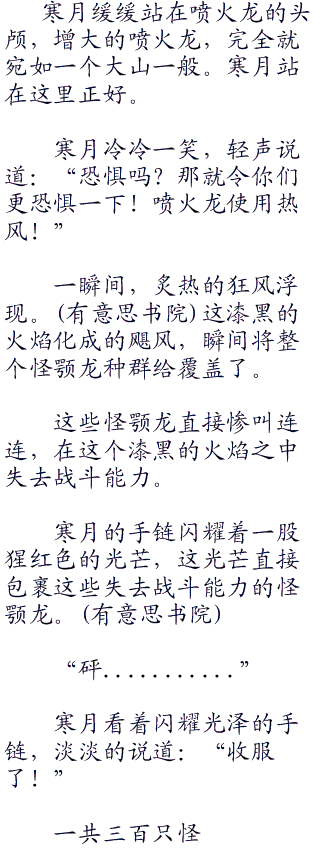 寒月缓缓站在喷火龙的头
颅，增大的喷火龙，完全就
宛如一个大山一般。寒月站
在这里正好。
寒月冷冷一笑，轻声说
道：“恐惧吗？那就令你们
更恐惧一下！喷火龙使用热
风！”
一瞬间，炙热的狂风浮
现。(有意思书院)这漆黑的
火焰化成的飓风，瞬间将整
个怪颚龙种群给覆盖了。
这些怪颚龙直接惨叫连
连，在这个漆黑的火焰之中
失去战斗能力。
寒月的手链闪耀着一股
猩红色的光芒，这光芒直接
包裹这些失去战斗能力的怪
颚龙。(有意思书院)
“砰...........”
寒月看着闪耀光泽的手
链，淡淡的说道：“收服
了！”
一共三百只怪